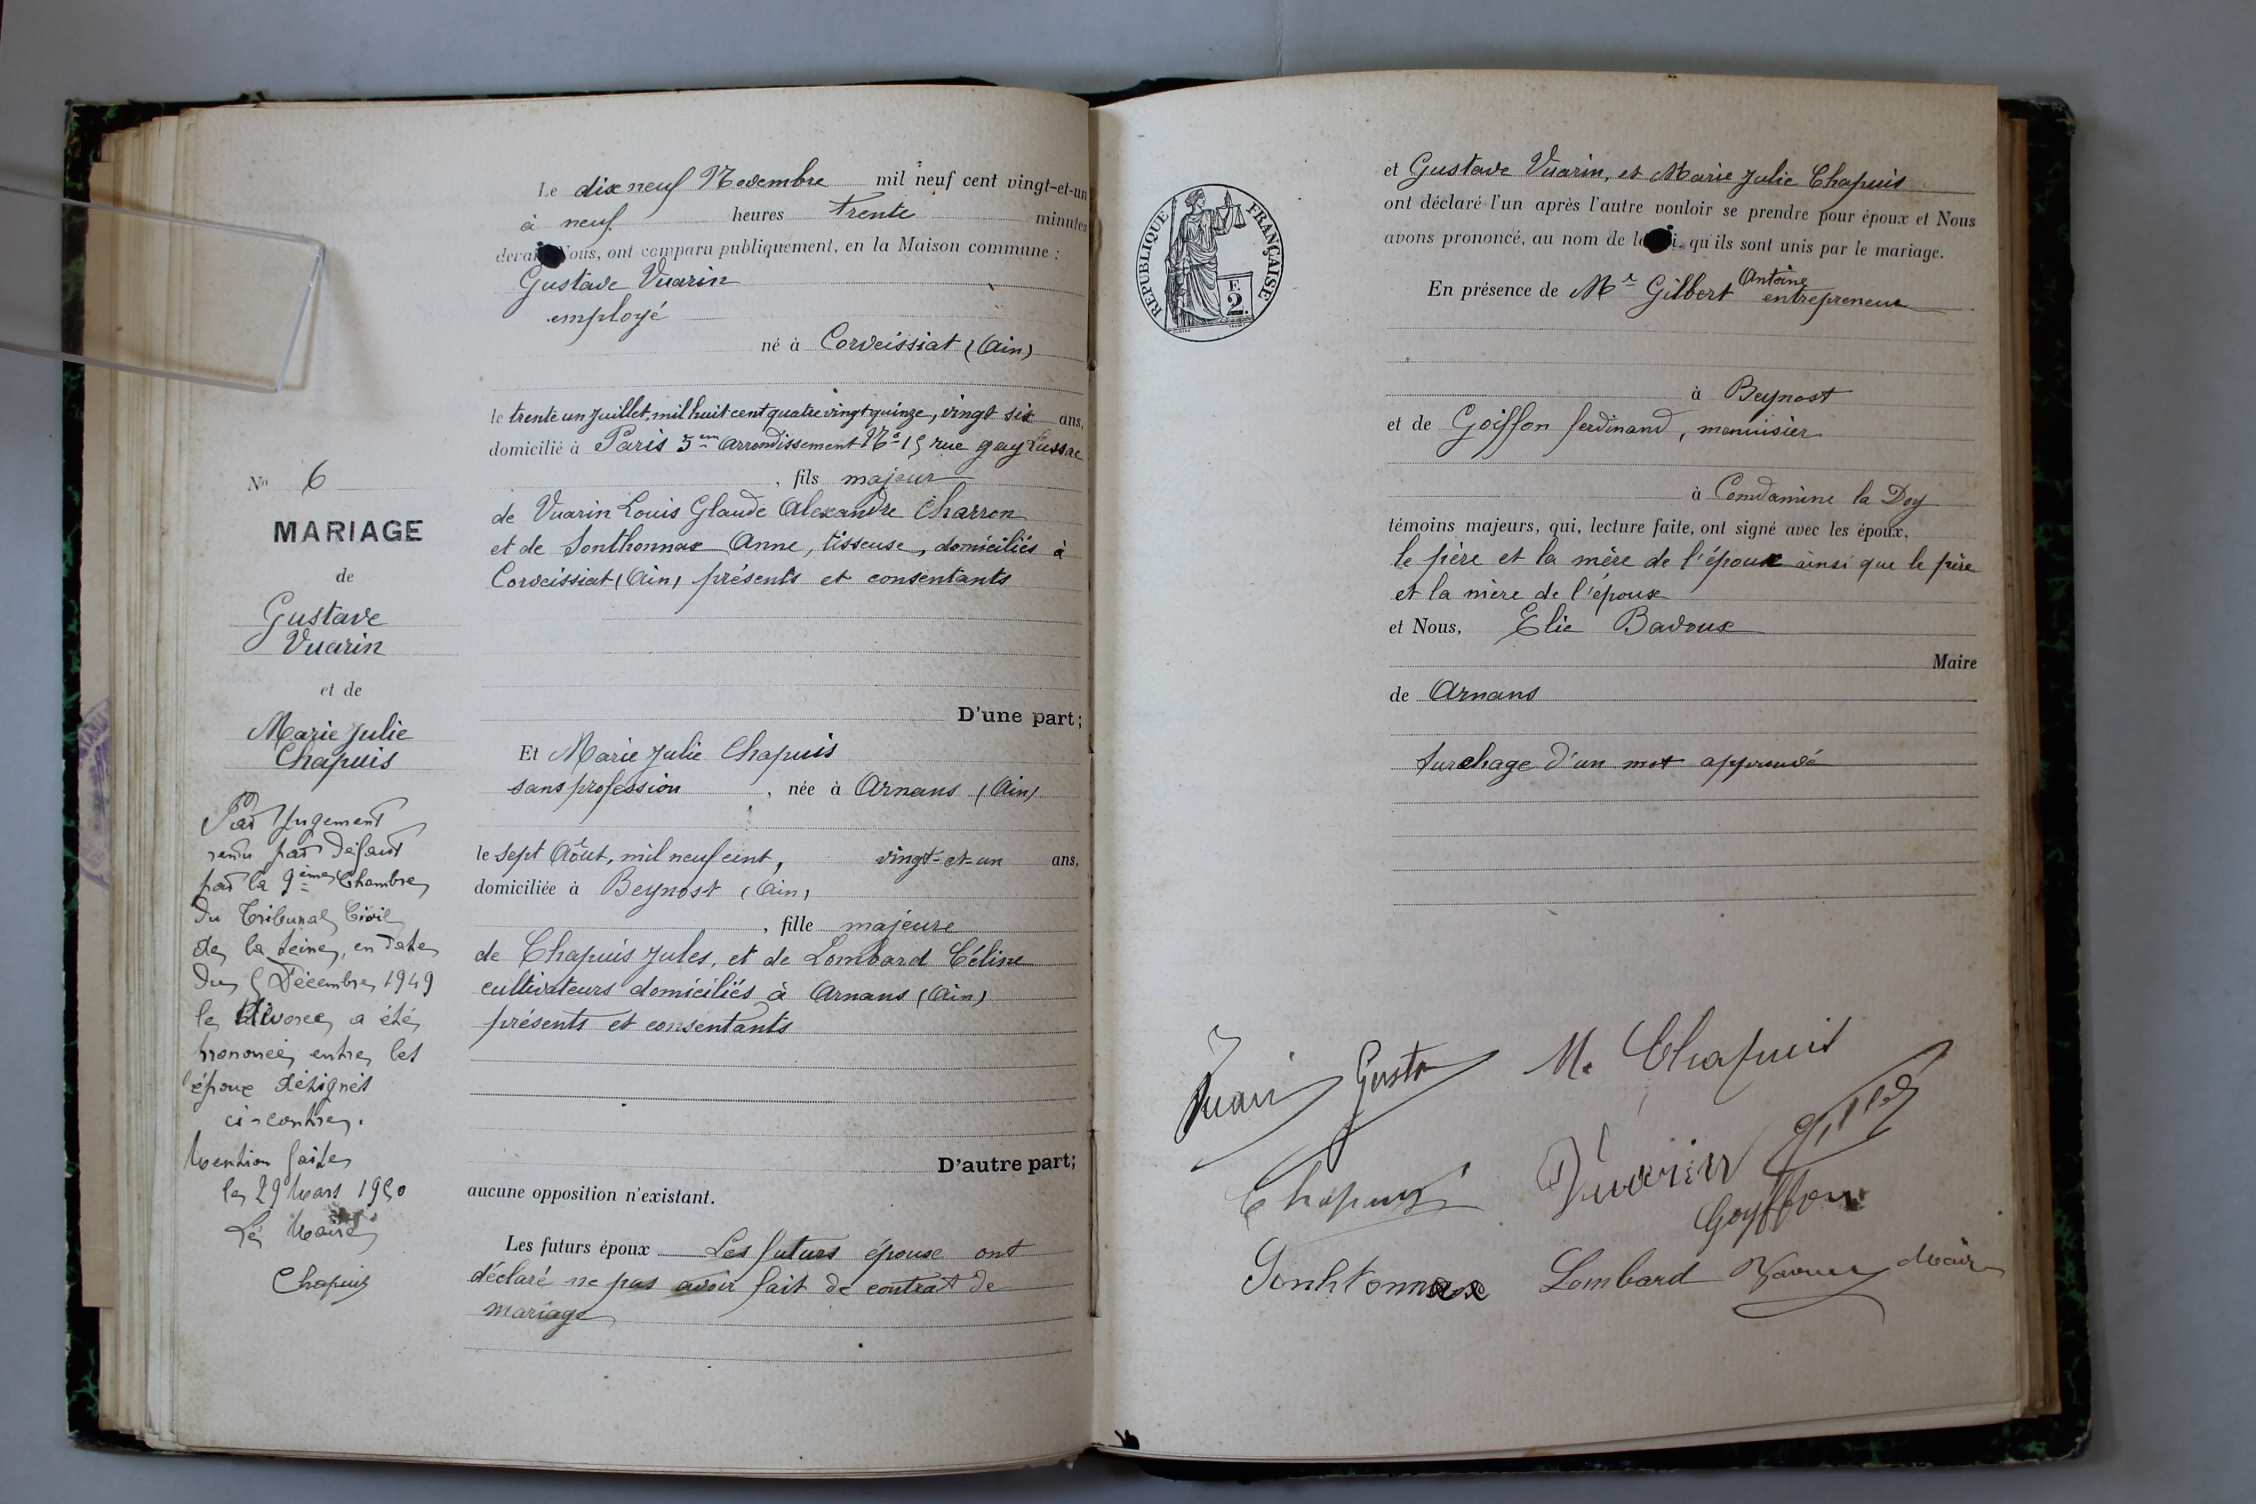 Le dix neuf Novembre mil neuf cent vingt-et-un
à neuf heures Trente minutes
devant Nous, ont comparu publiquement, en la Maison commune :
Gustave Vuarin
employé
né à Corveissiat (Ain)
le trente un Juillet, mil huit cent quatre vingt quinze, vingt six ans,
domicilié à Paris 5em arrondissement No 15 rue gay Lussac
, fils majeur
de Vuarin Louis Glaude Alexandre Charron
et de Sonthonnax Anne, tisseuse, domiciliés à
Corveissiat (Ain) présents et consentants
D'une part;
Et Marie Julie Chapuis
sans profession, née à Arnans (Ain)
le sept Août, mil neuf cent, vingt-et-un ans,
domiciliée à Beynost (Ain)
, fille majeure
de Chapuis Jules, et de Lombard Céline
cultivateurs domiciliés à Arnans (Ain)
présents et consentants
D'autre part;
aucune opposition n'existant.
Les futurs époux Les futurs époux ont
déclaré ne pas avoir fait de contrat de
mariage
No 6
MARIAGE
de
Gustave
Vuarin
et de
Marie Julie
Chapuis
Par Jugement
rendu par défaut
par la 9ème Chambre
du Tribunal Civil
de la Seine, en date
du 5 Décembre 1949
le Divorce a été
prononcé entre les
époux désignés
ci-contre.
Mention faite
le 29 Mars 1950
Le Maire
Chapuis
REPUBLIQUE FRANÇAISE
F.
2.
et Gustave Vuarin, et Marie Julie Chapuis
ont déclaré l'un après l'autre vouloir se prendre pour époux et Nous
avons prononcé, au nom de la loi, qu'ils sont unis par le mariage.
En présence de Mr Gilbert Antoine entrepreneur
à Beynost
et de Goiffon ferdinand, menuisier
à Condamine la Doy
témoins majeurs, qui, lecture faite, ont signé avec les époux,
le père et la mère de l'époux ainsi que le père
et la mère de l'épouse
et Nous, Elie Badoux
Maire
de Arnans
Surchage d'un mot approuvé
Vuarin Gusta M. Chapuis
Chapuis Vuarin Gilbert
Goyffon
Sonhtonnax Lombard Maire